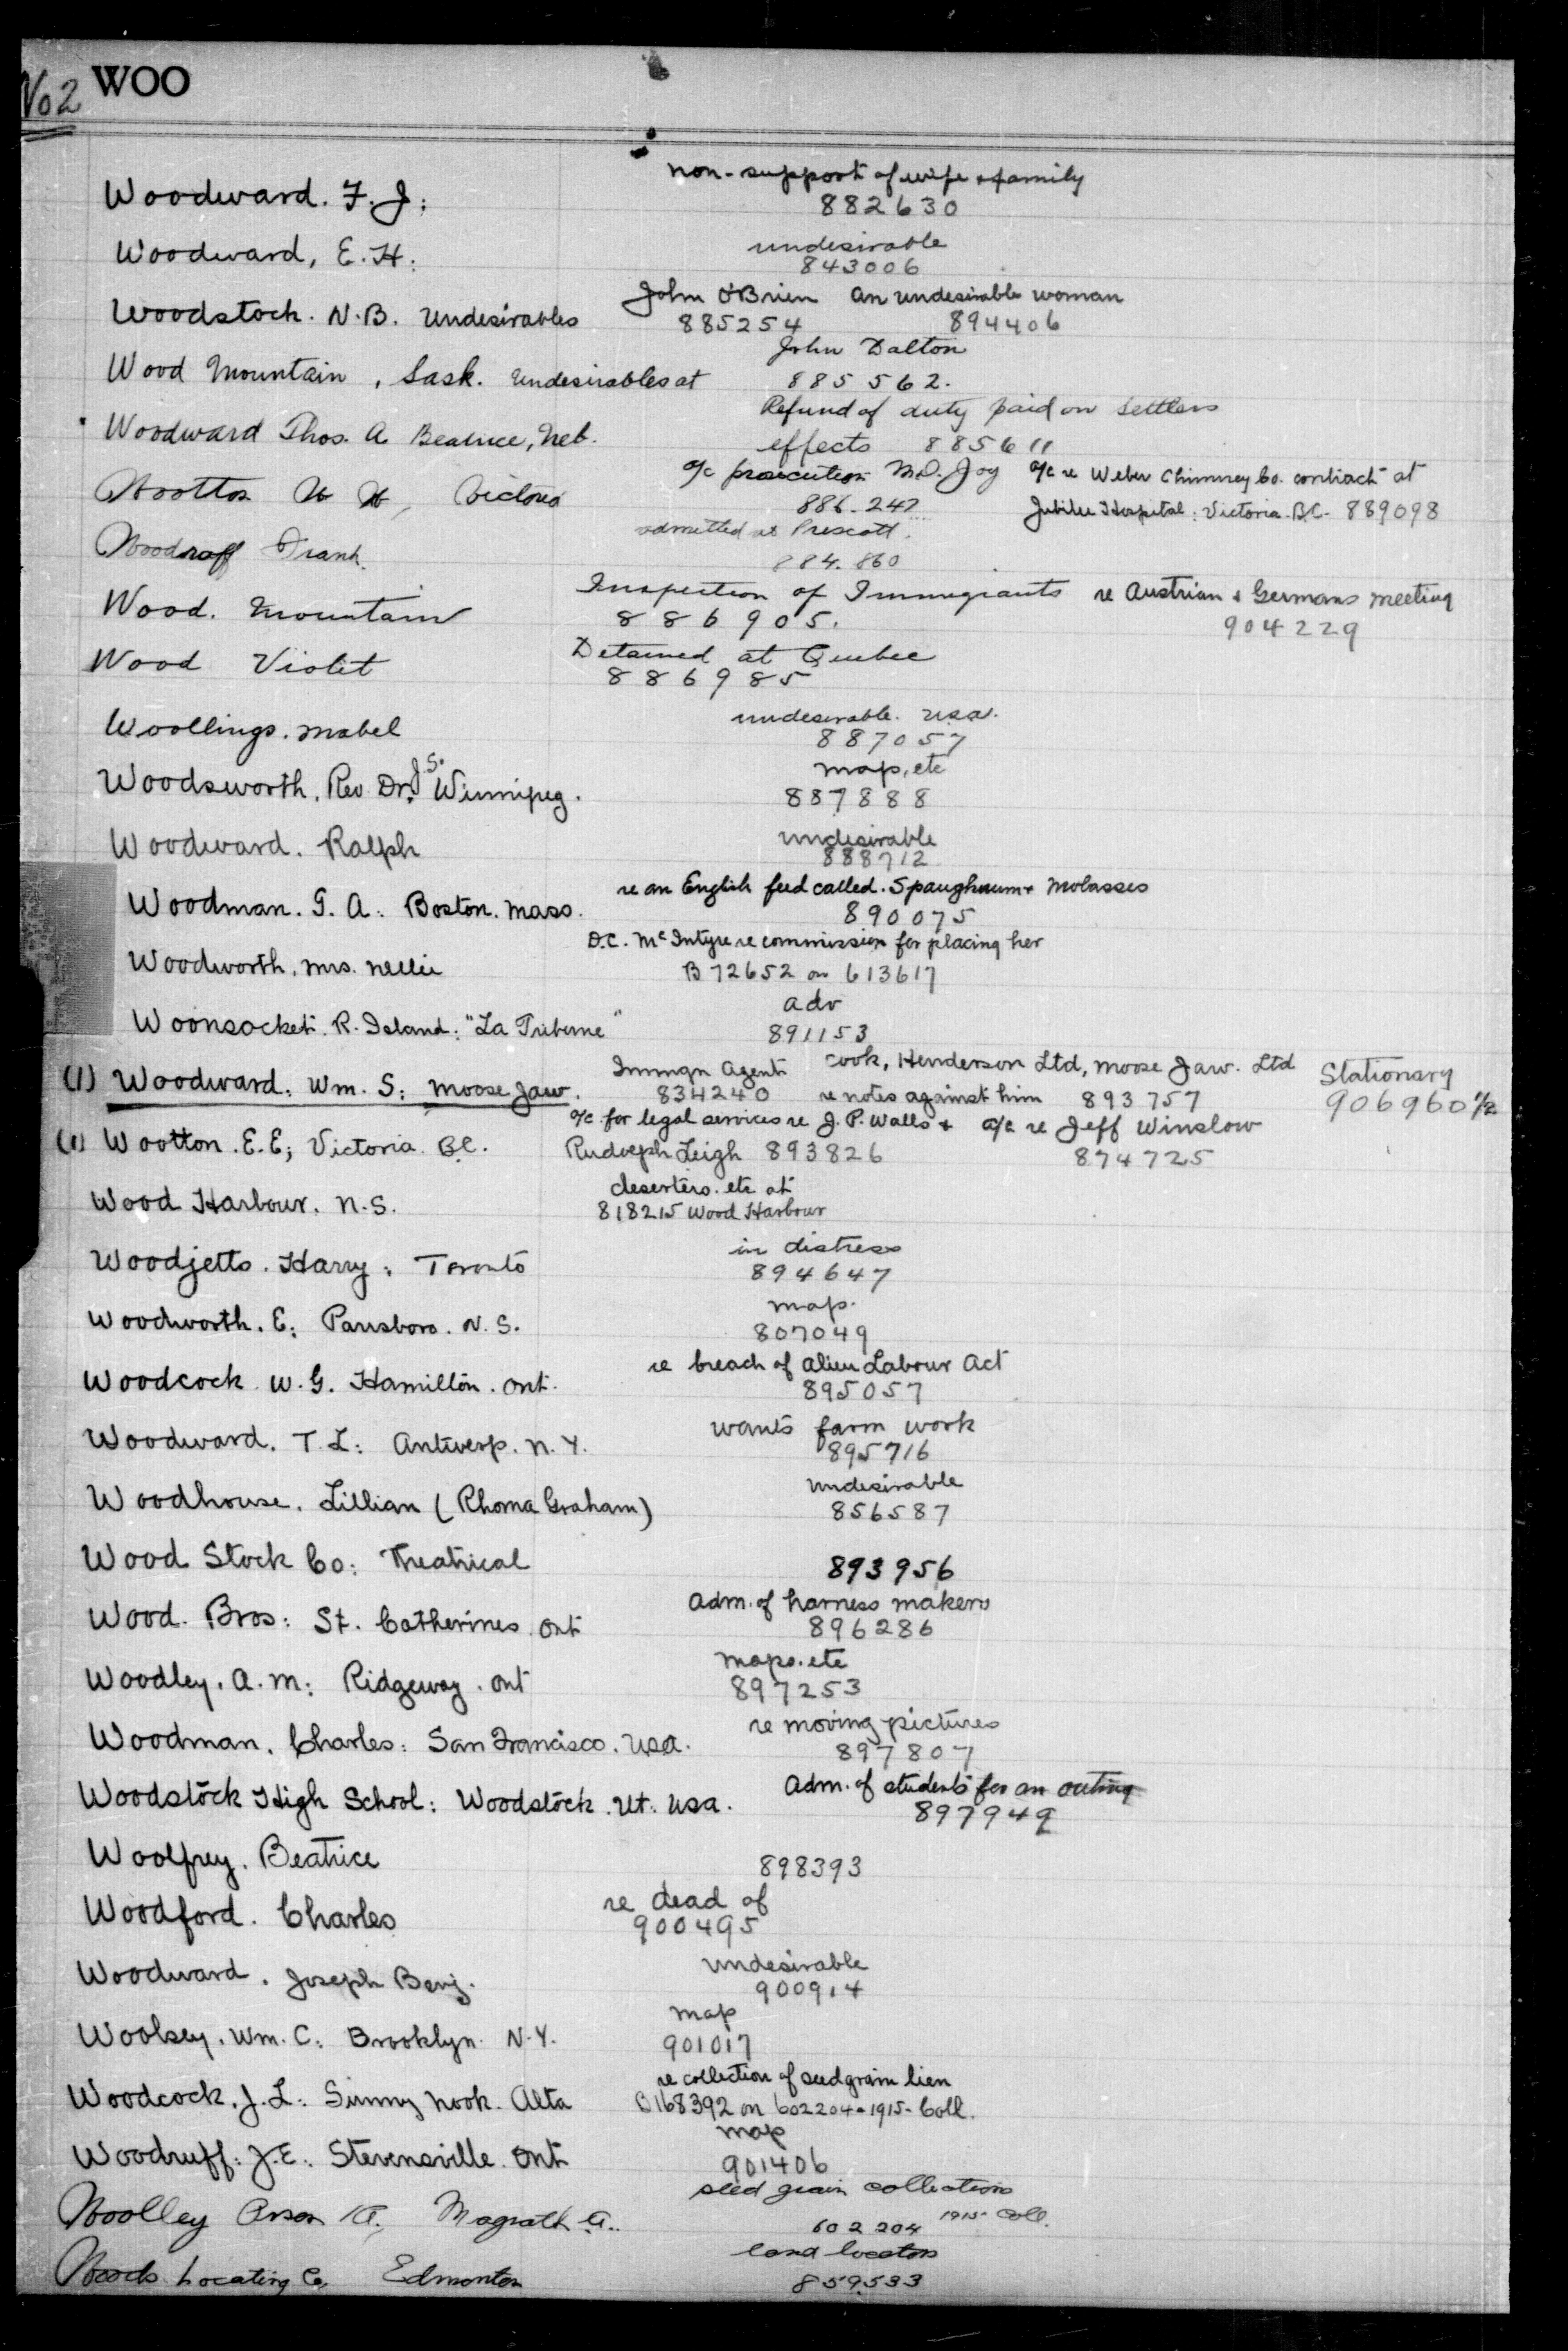 No 2 WOO
non-support of wife & family
Woodward. F. J:
882630
undesirable
Woodward, E. H:
843006
John O'Brien an undesirable woman
Woodstock. N.B. Undesirables
885254 894406
John Dalton
Wood Mountain, Sask. Undesirables at
885562.
Refund of duty paid on settlers
Woodward Thos. A Beatrice, Neb.
effects 885611
a/c prosecution M.D. Joy a/c re Weber Chimney Co. contract at
Wootton Victoria
886-247 Jubilee Hospital: Victoria. B.C. 889098
admitted at Prescott.
Woodruff Frank.
884.860
Inspection of Immigrants re Austrian & Germans meeting
Wood. Mountain
886905. 904229
Detained at Quebec
Wood Violet
886985
undesirable. USA.
Woollings. Mabel
887057
map, etc
Woodsworth, Rev. Dr. J.S. Winnipeg.
887888
undesirable
Woodward. Ralph
888712
re an English feed called. Spaughnum & Molasses
Woodman. G. A: Boston. Mass.
890075
D.C. McIntyre re commission for placing her
Woodworth, Mrs. Nellie
B 72652 on 613617
adv
Woonsocket. R. Island: "La Tribune"
891153
Immgn Agent Cook, Henderson Ltd, Moose Jaw. Ltd Stationary
(1) Woodward: Wm. S: Moose Jaw.
834240 re notes against him 893757 906960 1/2
a/c for legal services re J. P. Walls & a/c re Jeff Winslow
(1) Wootton. E.E; Victoria. BC.
Rudolph Leigh 893826 874725
deserters. etc at
Wood Harbour. N.S.
818215 Wood Harbour
in distress
Woodjetts. Harry: Toronto
894647
map.
Woodworth. E: Parrsboro. N.S.
807049
re breach of Alien Labour Act
Woodcock. W. G. Hamilton. Ont.
895057
wants farm work
Woodward. T. L: Antwerp. N.Y.
895716
Undesirable
Woodhouse. Lillian (Rhoma Graham)
856587
Wood Stock Co: Theatrical
893956
Adm. of harness makers
Wood. Bros: St. Catherines. Ont
896286
maps. etc
Woodley. A. M: Ridgeway. Ont
897253
re moving pictures
Woodman. Charles: San Francisco. USA.
897807
Adm. of students for an outing
Woodstock High School: Woodstock. Vt. USA.
897949
Woolfrey. Beatrice
898393
re dead of
Woodford. Charles
900495
Undesirable
Woodward. Joseph Benj.
900914
map
Woolsey. Wm. C: Brooklyn. N.Y.
901017
re collection of seed grain lien
Woodcock. J. L: Sunny nook. Alta
B168392 on 602204-1915-Coll.
map
Woodruff: J. E: Stevensville. Ont
901406
seed grain collections
Woolley Magrath A.
602204 1915 Coll.
land locators
Woods Locating Co, Edmonton
859533